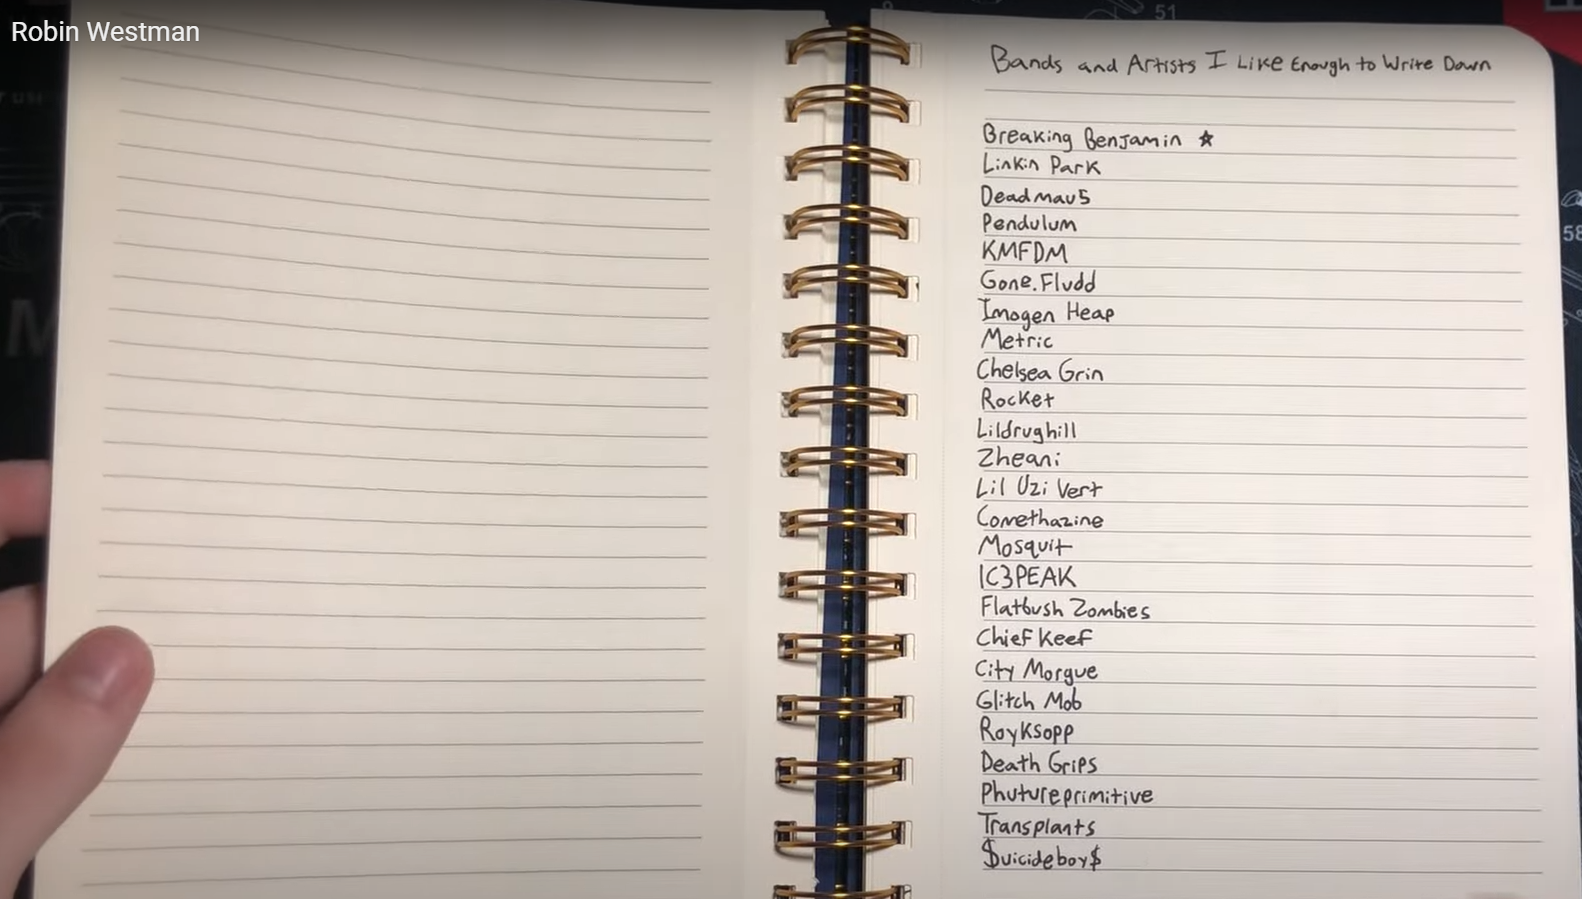 Robin Westman
51
Bands and Artists I Like Enough to Write Down
Breaking Benjamin ☆
Linkin Park
Deadmau5
Pendulum
KMFDM
Gone.Fludd
Imogen Heap
Metric
Chelsea Grin
Rocket
Lildrughill
Zheani
Lil Uzi Vert
Comethazine
Mosquit
IC3PEAK
Flatbush Zombies
Chief Keef
City Morgue
Glitch Mob
Royksopp
Death Grips
Phutureprimitive
Transplants
$uicideboy$
58